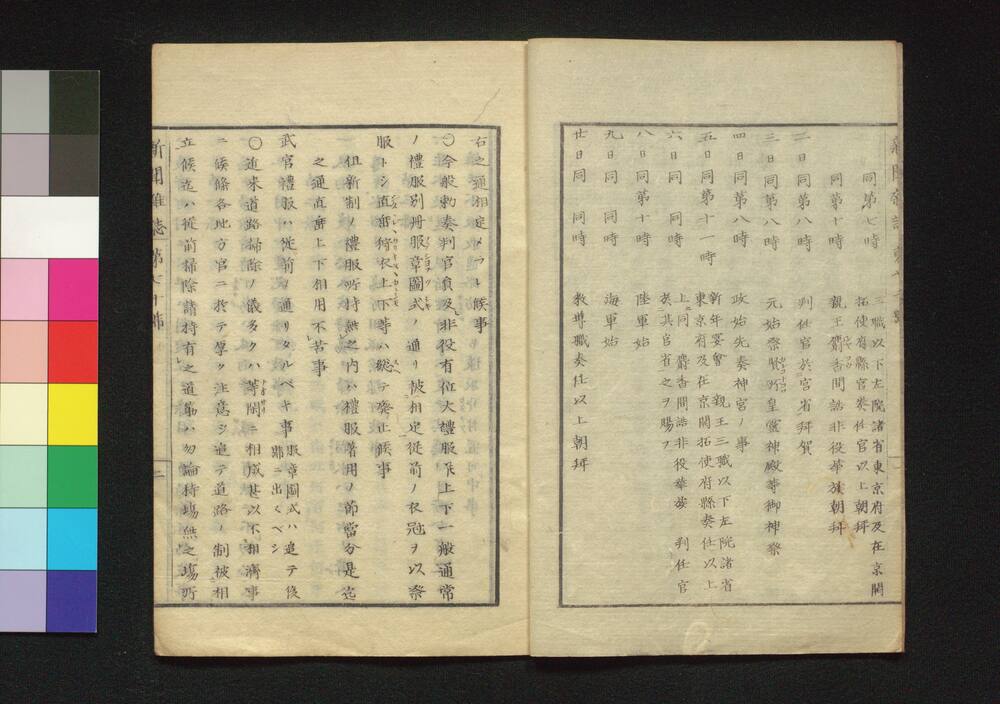 同第七時 三職以下左院諸省東京府及在京開
拓使府縣官奏任官以上朝拜
同第十時 親王麝香間詰非役華族朝拜
二日同第八時 判任官於宮省拜賀
三日同第八時 元始祭賢所皇靈神殿等御神祭
四日同第八時 政始先奏神宮ノ事
五日同第十一時 新年宴會 親王三職以下左院諸省
東京府及在京開拓使府縣奏任以上
六日同 同時 上同 麝香間詰非役華族 判任官
於其官省之ヲ賜フ
八日同第十時 陸軍始
九日同 同時 海軍始
廿日同 同時 教導職奏任以上朝拜
右之通相定メラレ候事
〇今般勅奏判官員及非役有位大禮服并上下一般通常
ノ禮服別册服章圖式ノ通リ被相定從前ノ衣冠ヲ以祭
服トシ直垂狩衣上下等ハ總テ廢止候事
但新制ノ禮服所持無之内ハ禮服著用ノ節當分是迄
之通直垂上下相用不苦事
武官禮服ハ從前ノ通リタルベキ事 服章圖式ハ追テ後
號ニ出スベシ
〇近来道路掃除ノ儀多クハ等閑ニ相成甚以不相濟事
ニ候條各地方官ニ於テ厚ク注意シ追テ道路ノ制被相
立候迄ハ從前掃除請持有之道筋ハ勿論持場無之場所
新聞雜誌 第七十號 二